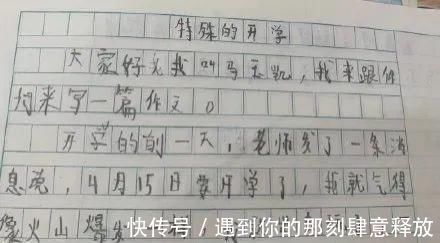 特殊的开学
大家好先我叫马玉凯,我来跟你
们来写一篇作文。
开学的前一天,老师发了一条消
息说,4月15日要开学了,我就气得
像火山爆发
快传号/遇到你的那刻肆意释放